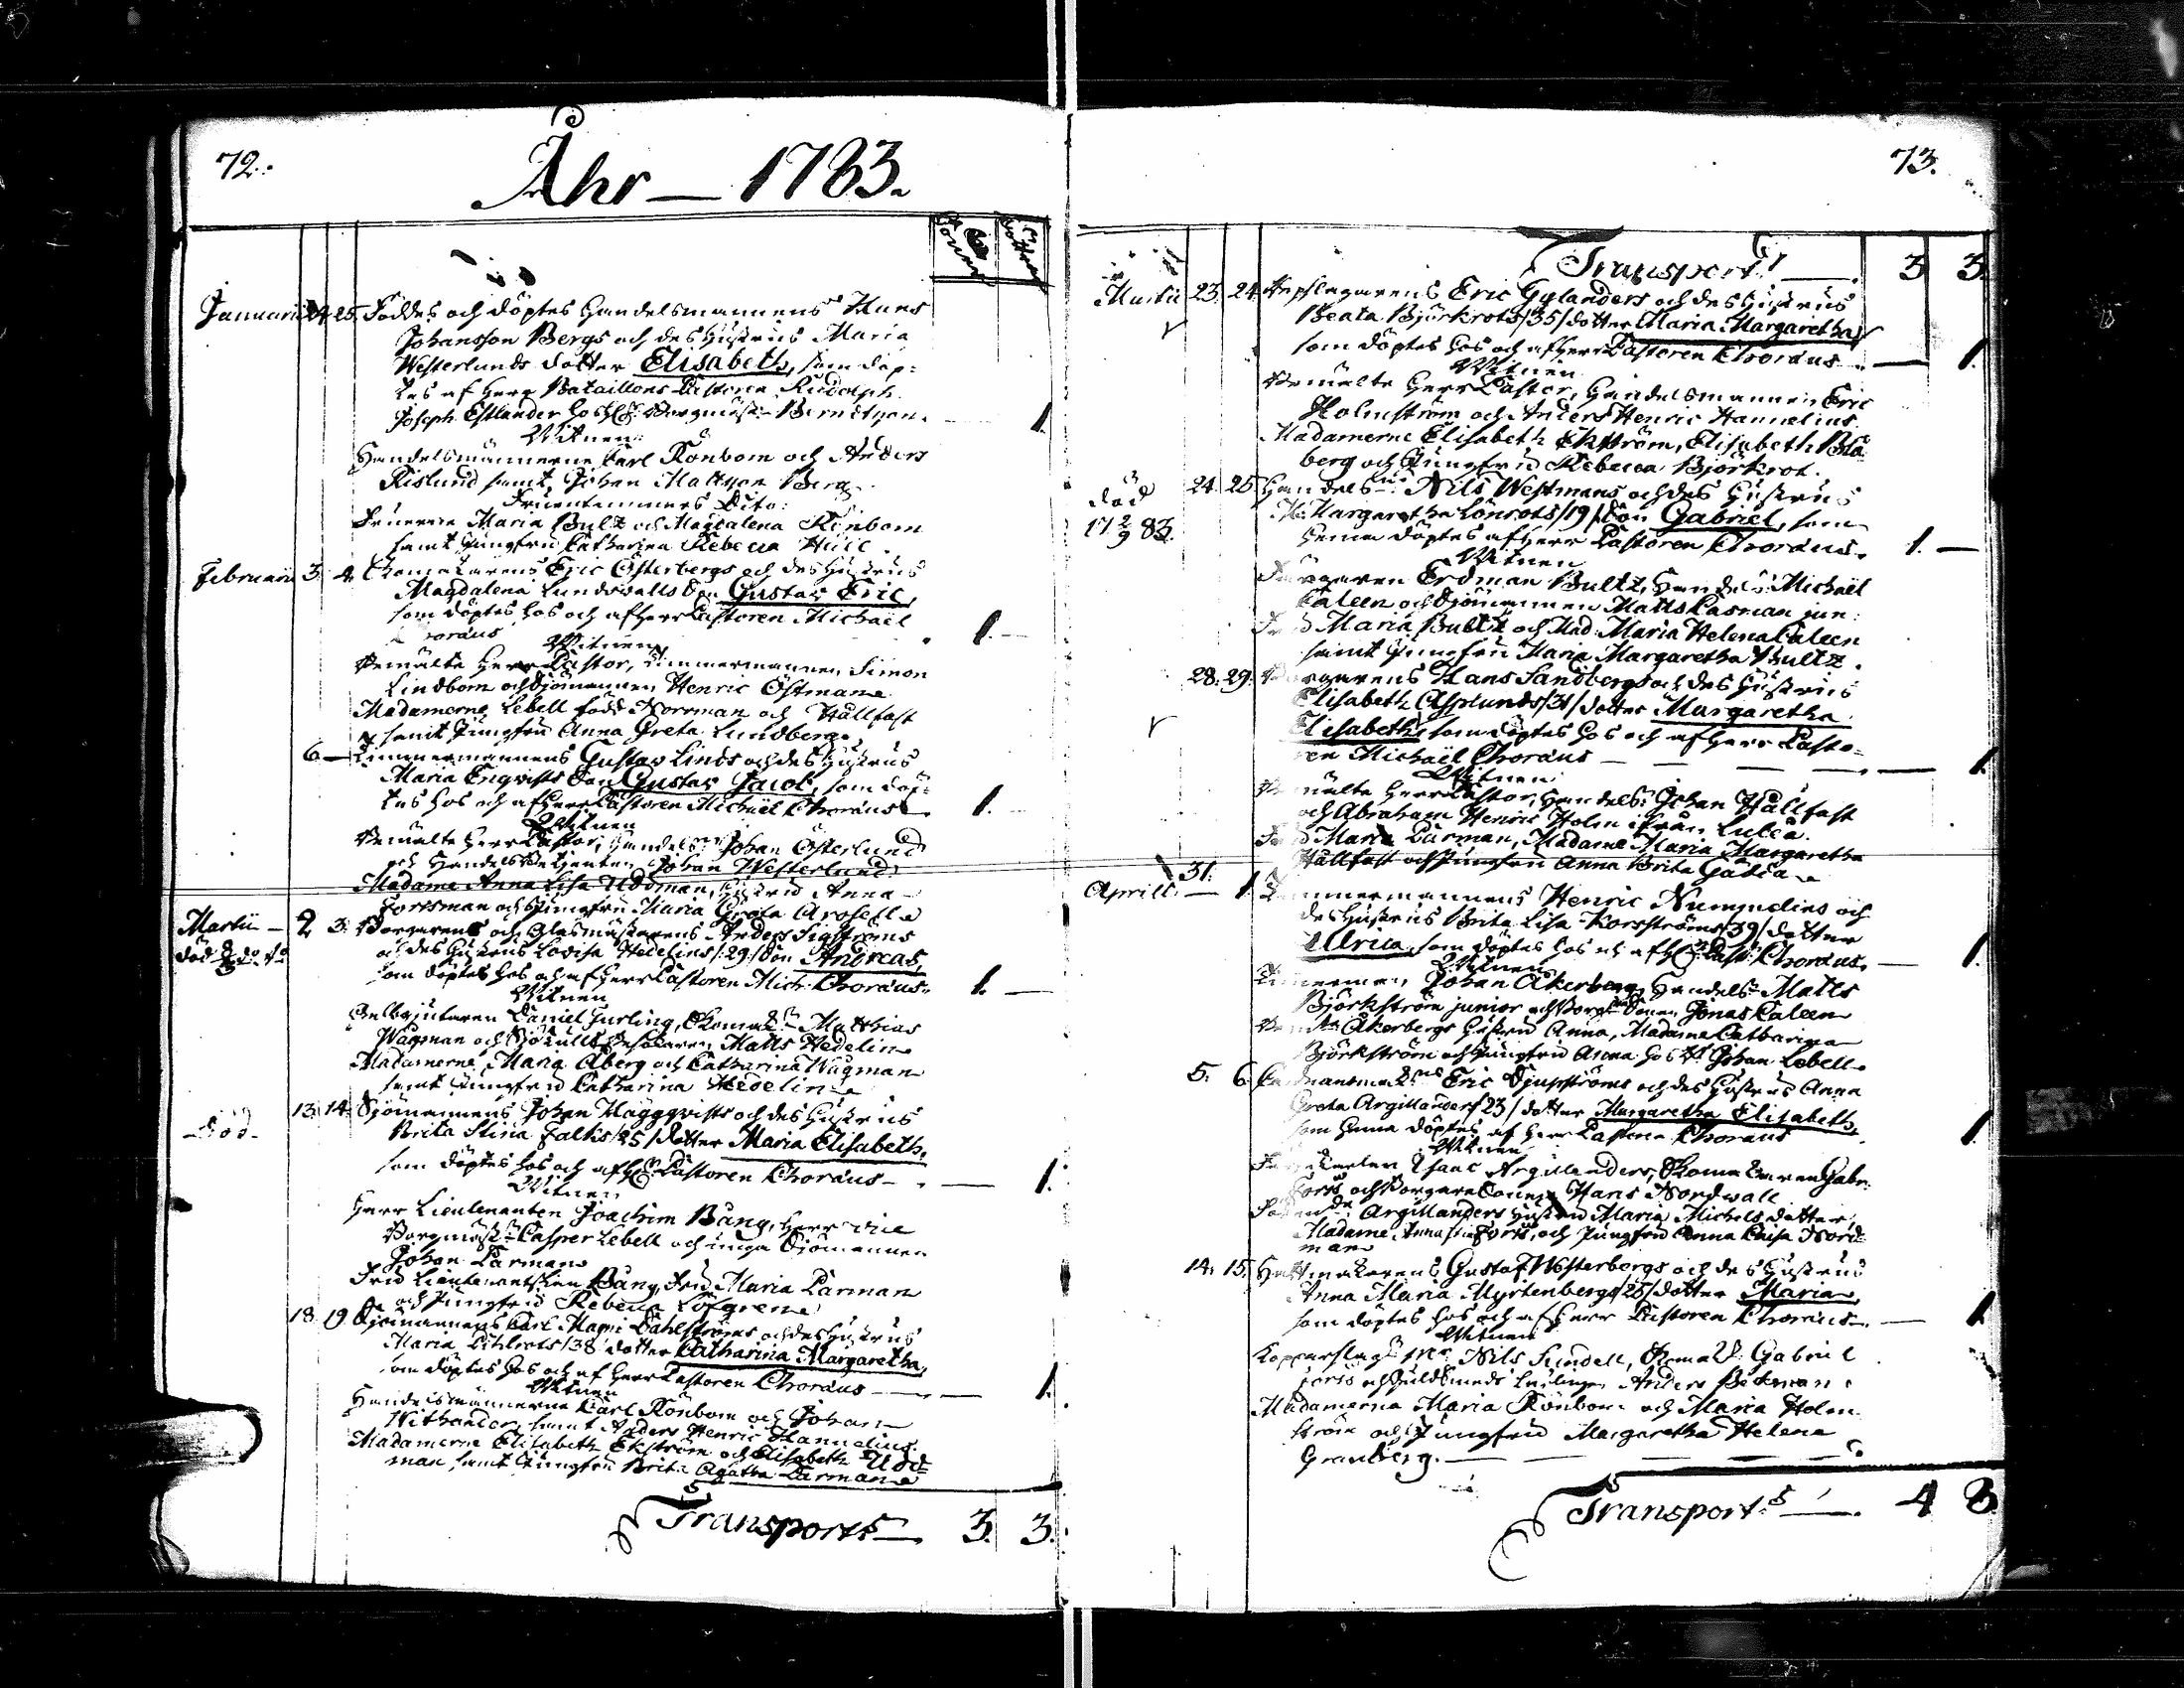 72.
Åhr — 1783.
Söner Döttrar
Januarii 24. 25. Föddes och döptes Handelsmannens Hans
Johansson Bergs och des Hustrus Maria
Westerlunds dotter Elisabeth, som döp-
tes af Herr Bataillons Pastoren Rudolph
Joseph Estlander hos H:r Borgmäst: Berndtson. 1.
Witnen
Handelsmännerne Carl Rönbom och Anders
Rislund samt Johan Mattson Berg
Fruentimmers Dito:
Fruerne Maria Bultz och Magdalena Rönbom
samt Jungfru Catharina Rebecca Hull.
Februarii 3. 4. Skomakarens Eric Österbergs och des Hustrus
Magdalena Lundwalls Son Gustav Eric,
som döptes hos och af Herr Pastoren Michaël
Choræus 1. —
Witnen
Bemälte Herr Pastor, Timmermannen Simon
Lindbom och Sjömannen Henric Östman
Madamerne Lebell född Norrman och Hällfast
samt Jungfru Anna Greta Lundberg.
6 — Timmermannens Gustav Linds och des Hustrus
Maria Enqvists Son Gustav Jacob, som döp-
tes hos och af Herr Pastoren Michaël Choræus 1. —
Witnen
Bemälte Herr Pastor, Handels: Johan Österlund
och Handels Betjenten Johan Westerlund
Madame Anna Lisa Uddman, Hustru Anna
Forssman och Jungfru Maria Greta Aroselle
Martii — 2 3. Borgarens och Glasmästarens Anders Sigströms
död
och des Hustrus Lovisa Hedelins /:29:/ Son Andreas,
som döptes hos och af Herr Pastoren Mich. Choræus. 1. —
Witnen
Gelbgjutaren Daniel Gurling, Skomak: Matthias
Wägman och Matts Hedelin
Madamerne Maria Åberg och Catharina Wägman
samt Jungfru Catharina Hedelin
död. 13. 14. Sjömannens Johan Häggqvists och des Hustrus
Brita Stina Falks /35/ dotter Maria Elisabeth,
som döptes hos och af H: Pastoren Choræus — — 1.
Witnen
Herr Lieutenanten Joachim Bäng, Herr vice
Borgmäst: Casper Lebell och unga Sjömannen
Johan Carman
Fru Lieutenantskan Bäng, Fru Maria Carman
och Jungfru Rebecca Löfgren
18 19 Sjömannens Carl Magni Dahlströms och des Hustrus
Maria Lihlrots /38/ dotter Catharina Margaretha,
som döptes hos och af Herr Pastoren Choræus — — 1.
Witnen
Handelsmännerne Carl Rönbom och Johan
Withander, samt Anders Henric Hannelius.
Madamerne Elisabeth Ekström och Elisabeth Udd-
man samt Jungfru Brita Agatha Carman
Transport: — 3. 3.
73.
Transport: — 3 3.
Martii 23. 24. Eric Gylanders och des Hustrus
Beata Björkrots /35/ dotter Maria Margaretha
som döptes hos och af Herr Pastoren Choræus — 1.
Witnen
Bemälte Herr Pastor, Handelsmannen Eric
Holmström och Anders Henric Hannelius.
Madamerne Elisabeth Ekström, Elisabeth Blå-
berg och Jungfru Rebecca Björkrot.
död 24. 25. Handels: Nils Westmans och des Hustrus
17 2/9 83. Margaretha Lönrots /19/ Son Gabriel, som
hemma döptes af Herr Pastoren Choræus. 1. —
Witnen
Färgaren Erdman Bultz, Handels: Michaël
Caleen och Sjömannen Matts Carman jun:
Maria Bultz och Mad: Maria Helena Caleen
samt Jungfru Maria Margaretha Bultz.
28. 29. Borgarens Hans Sandbergs och des Hustrus
Elisabeth Asplunds /31/ dotter Margaretha
Elisabeth, som döptes hos och af Herr Pasto-
ren Michaël Choræus — — — 1.
Witnen
Bemälte Herr Pastor, Handels: Johan Hällfast
och Abraham Henric Holm ifrån Luleå.
Maria Carman, Madame Maria Margaretha
Hällfast och Jungfru Anna Brita Gadia
31.
Aprill. — 1. Timmermannens Henric Nummelins och
des Hustrus Brita Lisa Korsströms /39/ dotter
Ulrica, som döptes hos och af H: Past: Choræus. — 1.
Witnen
Timmerman Johan Åkerberg, Handels: Matts
Björkström junior och Borg: Sonen Jonas Caleen
Bemält: Åkerbergs Hustru Anna, Madame Catharina
Björkström och Jungfru Anna hos H: Johan Lebell
5. 6. Eric Djupströms och des Hustrus Anna
Greta Argillanders /23/ dotter Margaretha Elisabeth,
som hemma döptes af Herr Pastoren Choræus 1.
Witnen
Isaac Argillanders, Skomakaren Gabr:
Forss och Borgare Sonen Hans Nordwall
Argillanders Hustru Maria Michels dotter,
Madame Anna Forss, och Jungfru Anna Caisa Nord-
man
14. 15. Hattmakarens Gustaf Westerbergs och des Hustrus
Anna Maria Myrtenbergs /25/ dotter Maria,
som döptes hos och af Herr Pastoren Choræus — 1.
Witnen
Kopparslag: Nils Sundell, Skomak: Gabriel
Forss och Guldsmeds Lärlingen Anders Beckman.
Madamerna Maria Rönbom och Maria Holm-
ström och Jungfru Margaretha Helena
Granberg. — — —
Transport: — 4 8.